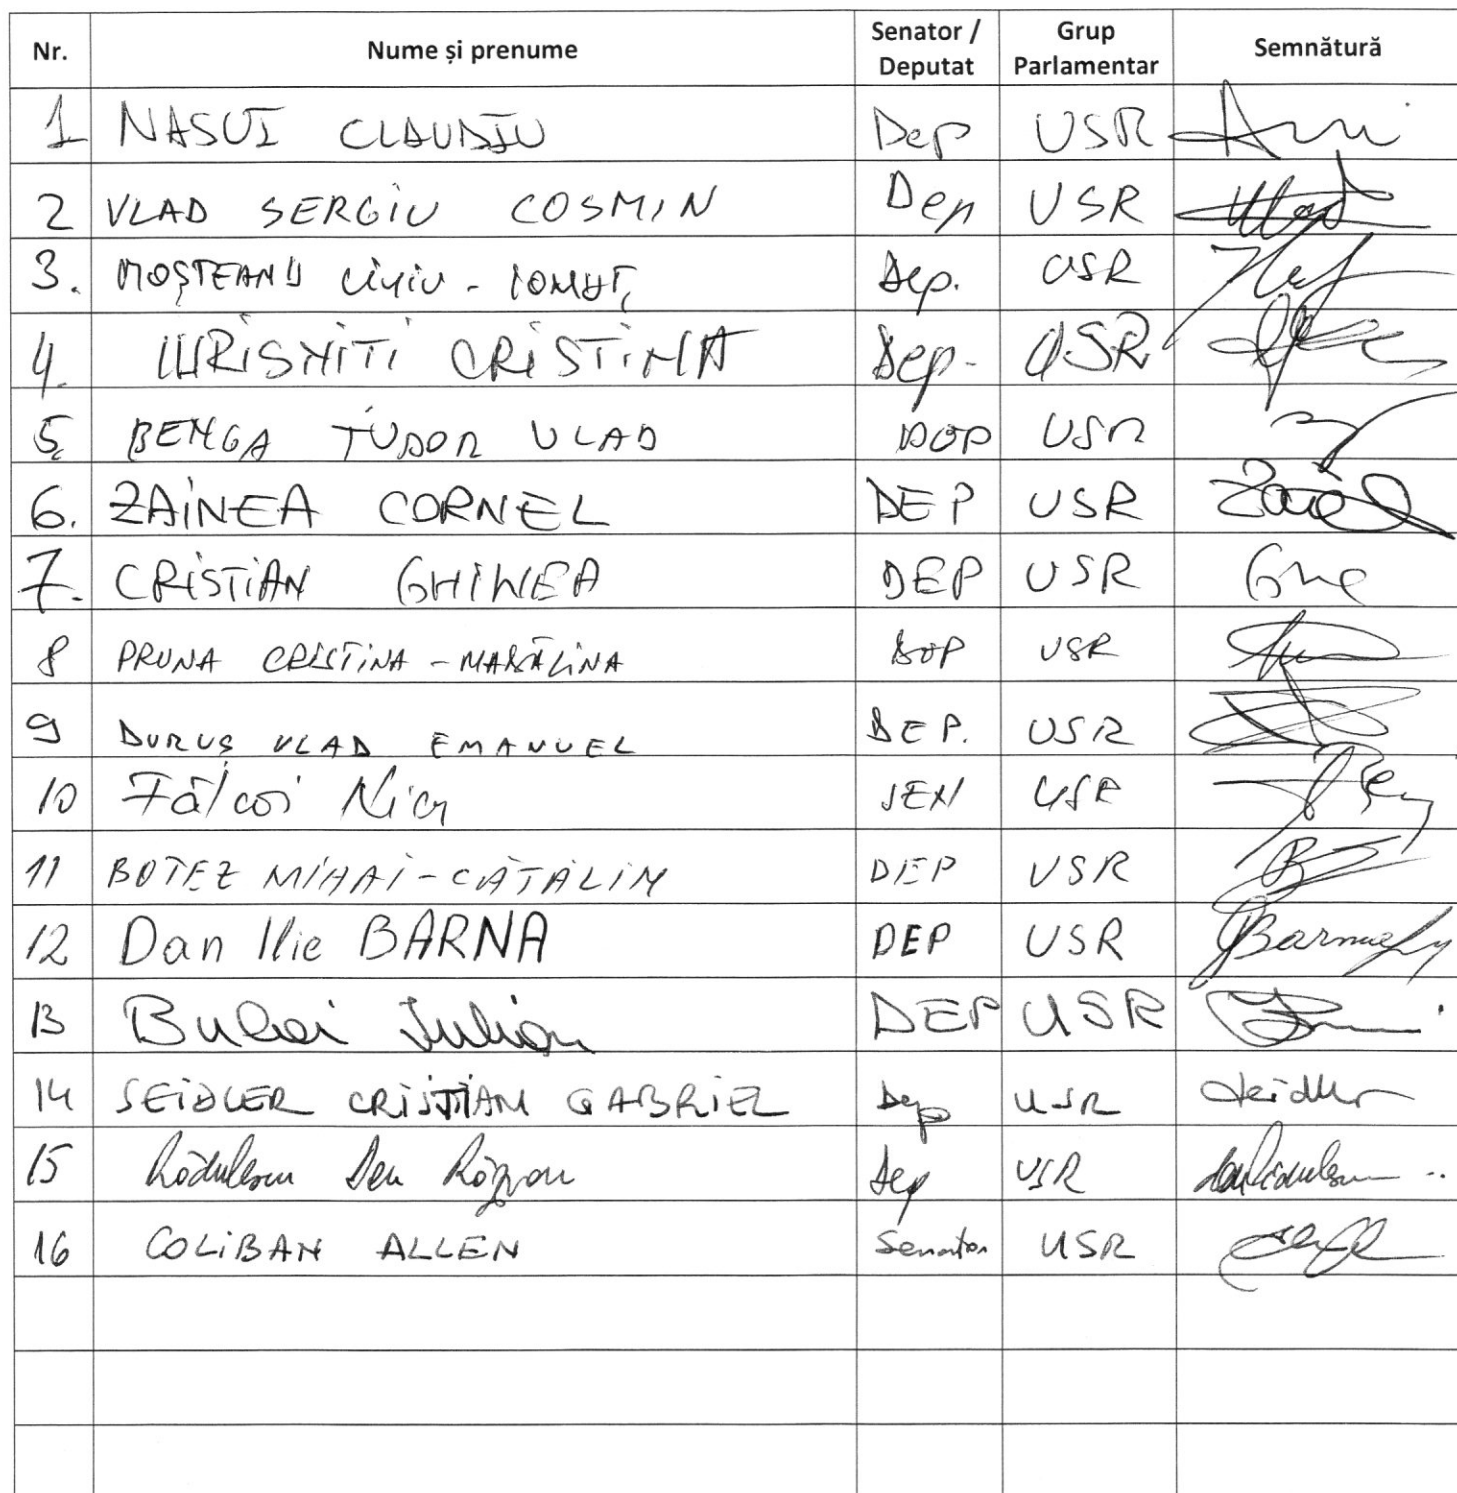 Nr. Nume și prenume Senator / Deputat Grup Parlamentar Semnătură
1 NASUI CLAUDIU Dep USR
2 VLAD SERGIU COSMIN Dep USR
3. MOȘTEANU LIVIU - IONUȚ Dep. USR
4. IURISNITI CRISTINA Dep. USR
5. BENGA TUDOR VLAD DEP USR
6. ZAINEA CORNEL DEP USR
7. CRISTIAN GHINEA DEP USR
8 PRUNA CRISTINA - MĂDĂLINA DEP USR
9 DURUȘ VLAD EMANUEL DEP. USR
10 Fălcoi Nicu SEN USR
11 BOTEZ MIHAI - CĂTĂLIN DEP USR
12 Dan Ilie BARNA DEP USR
13 Bulai Iulian DEP USR
14 SEIDLER CRISTIAN GABRIEL Dep USR Seidler
15 Rădulescu Dan Răzvan Dep USR
16 COLIBAN ALLEN Senator USR